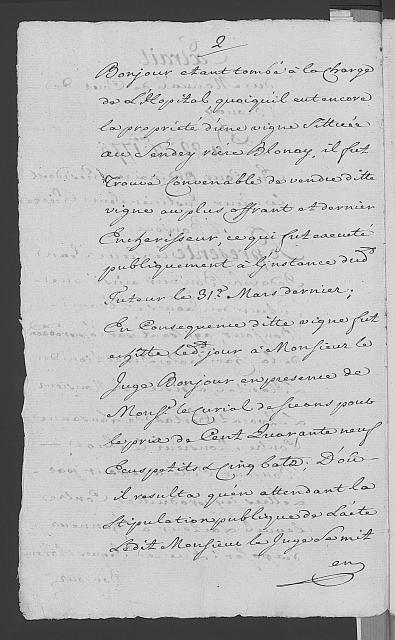 2
Bonjour etant tombé à la Charge
de L'Hopital quoiquil eut encore
la proprieté d'une vigne Sittuée
au Sendey rière Blonay, il fut
trouvé Convenable de vendre ditte
vigne au plus offrant et dernier
Encherisseur, ce qui fut executé
publiquement à L'instance dud.
Tuteur le 31.e Mars dernier;
En Consequence ditte vigne fut
echütte led. jour à Monsieur le
Juge Bonjour en presence de
Mons.r le Curial de pour
le prix de Cent Quarante neuf
Ecus petits & Cinq batz. D'où
il resulta qu'en attendant la
Stipulation publique de L'acte
Ledit Monsieur le Juge Se mit
en